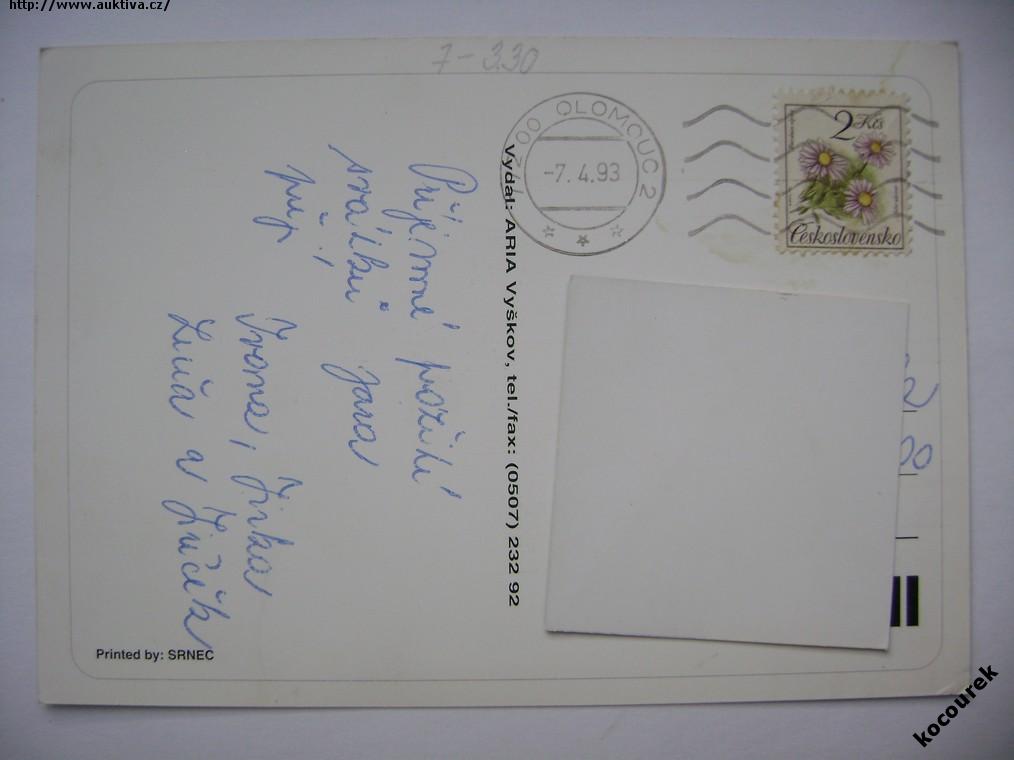 http://www.auktiva.cz/
7-3.30
OLOMOUC 2
-7.4.93
2 Kčs
Československo
Příjemné prožití
svátků jara
přejí
Ivona, Jirka
a Jiříček
Vydal: ARIA Vyškov, tel./fax: (0507) 232 92
Printed by: SRNEC
kocourek